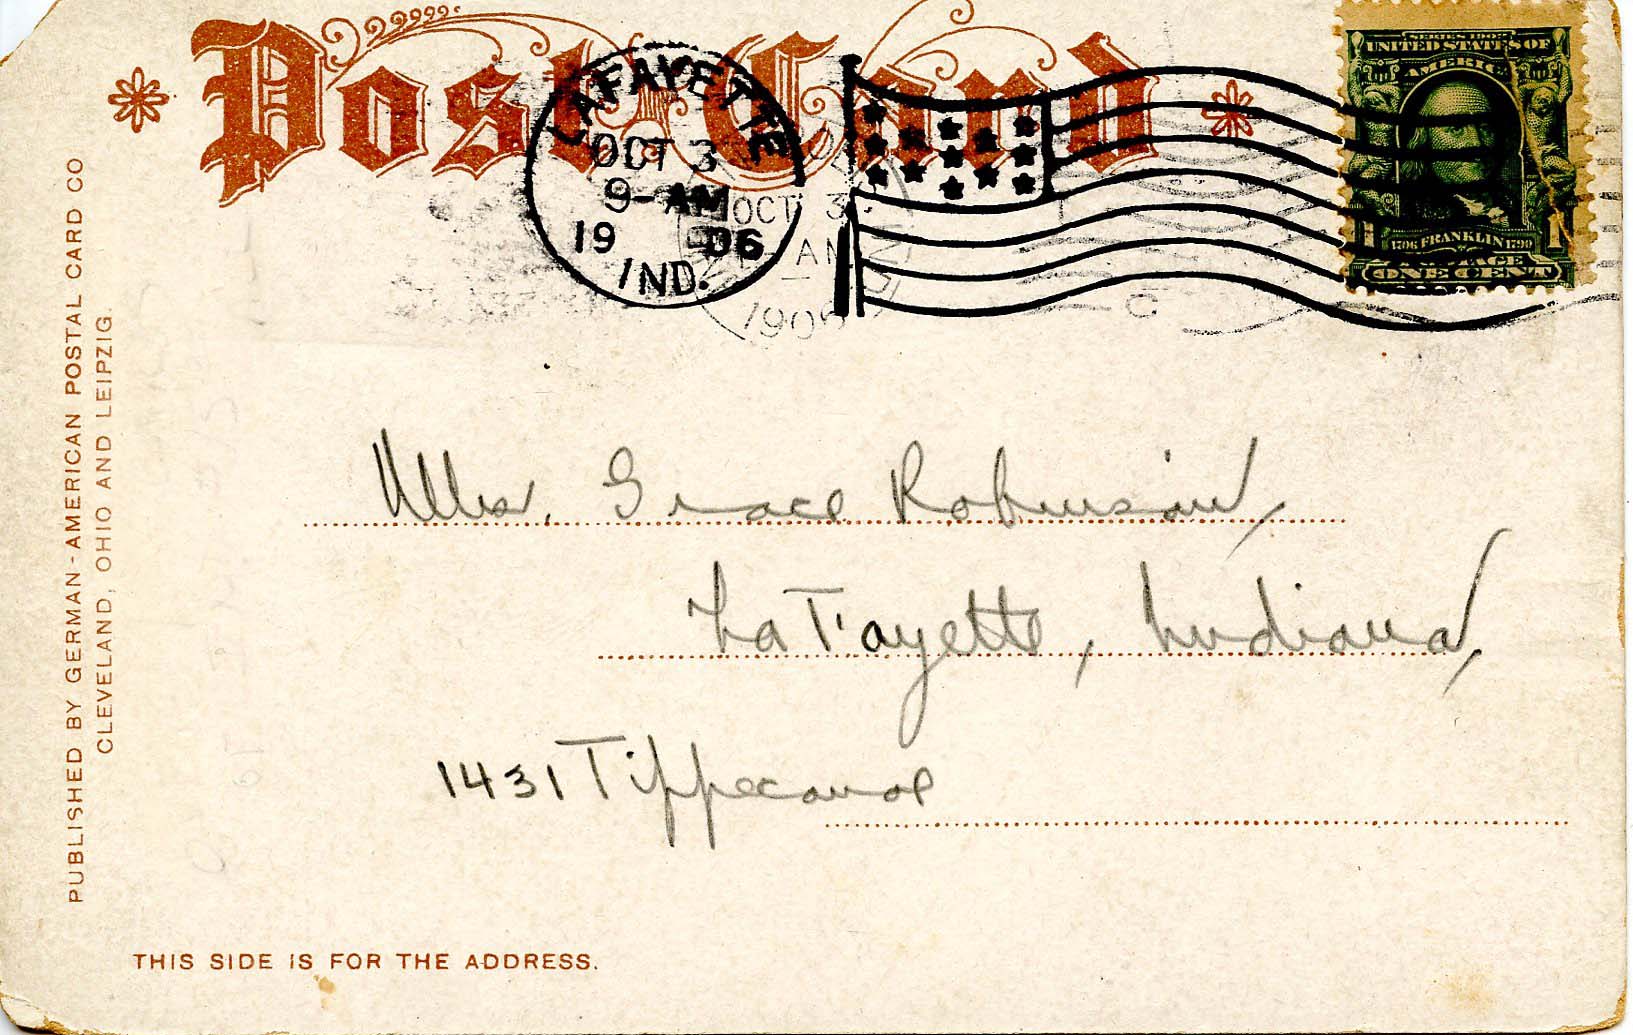 Post Card
LAFAYETTE
OCT 3
9-AM
1906
IND.
OCT 3
AM
1906
SERIES 1902
UNITED STATES OF
AMERICA
1706 FRANKLIN 1790
1 1
POSTAGE
ONE CENT
PUBLISHED BY GERMAN-AMERICAN POSTAL CARD CO
CLEVELAND, OHIO AND LEIPZIG
Miss. Grace Robinson,
LaFayette, Indiana,
1431 Tippecanoe
THIS SIDE IS FOR THE ADDRESS.